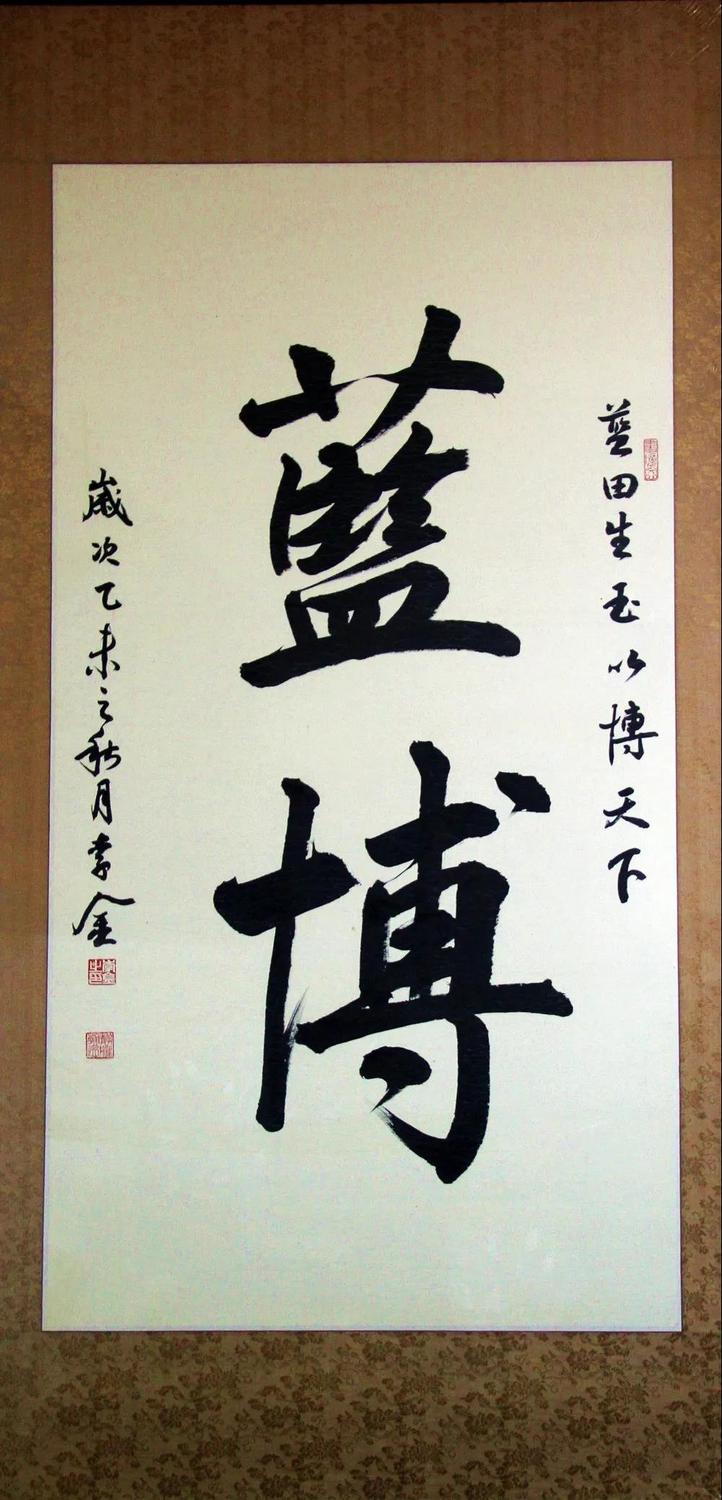 藍田生玉以博天下
藍博
歲次乙未之秋月李金